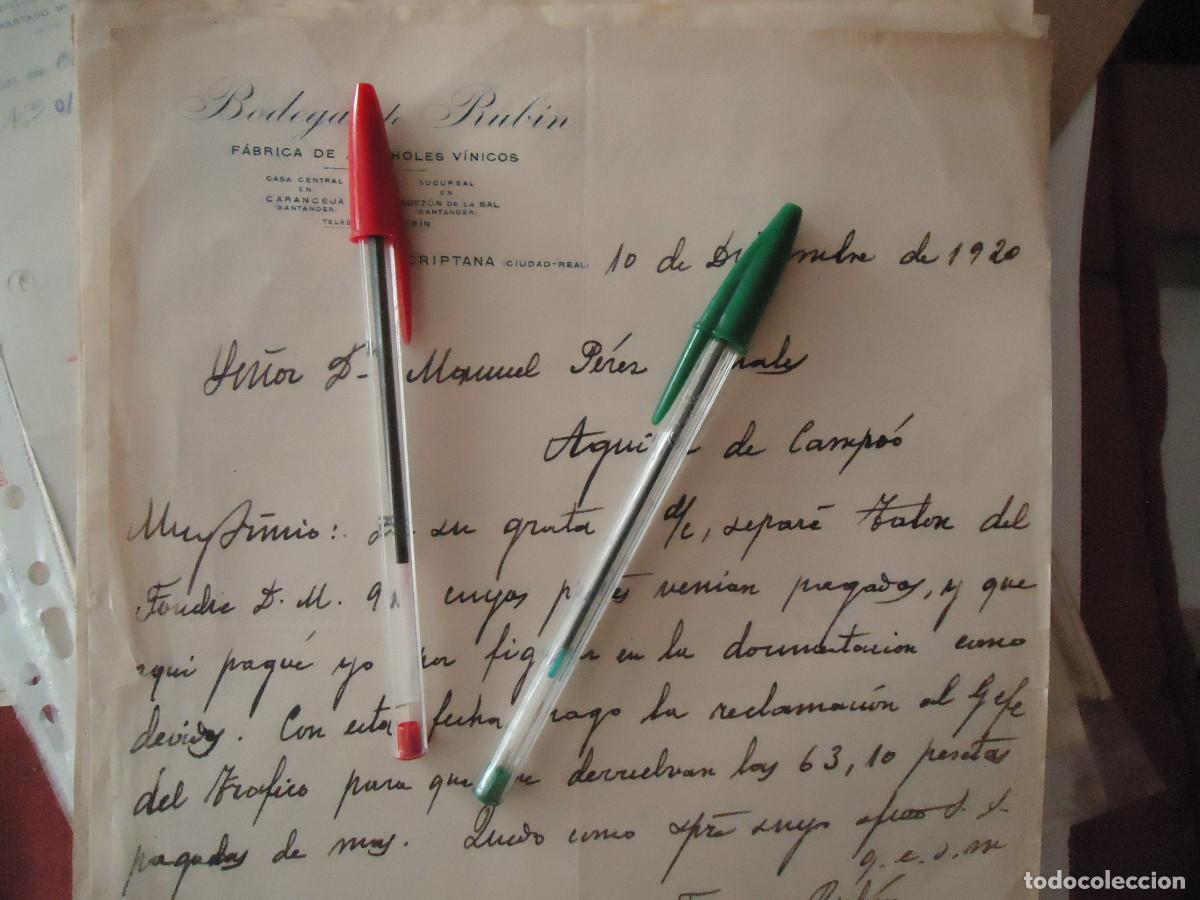 Bodegas de Rubin
FÁBRICA DE HOLES VÍNICOS
CASA CENTRAL
EN
CARANCEJA
(SANTANDER)
SUCURSAL
EN
BEZÓN DE LA SAL
(SANTANDER)
TELEG UBÍN
CRIPTANA (CIUDAD-REAL) 10 de Di mbre de 1920
Señor Dn Manuel Pérez
Agui de Campóo
Muy Sr. mio: su grata a/c, separé talon del
Foudre D. M. 9 cuyos p tes venian pagados, y que
aqui pagué yo por fig r en la documentacion como
devidos. Con esta fecha hago la reclamación al Gefe
del Trafico para que me devuelvan las 63,10 pesetas
pagadas de mas. Quedo como spre suyo afmo s. s.
q. e. s. m
todocoleccion